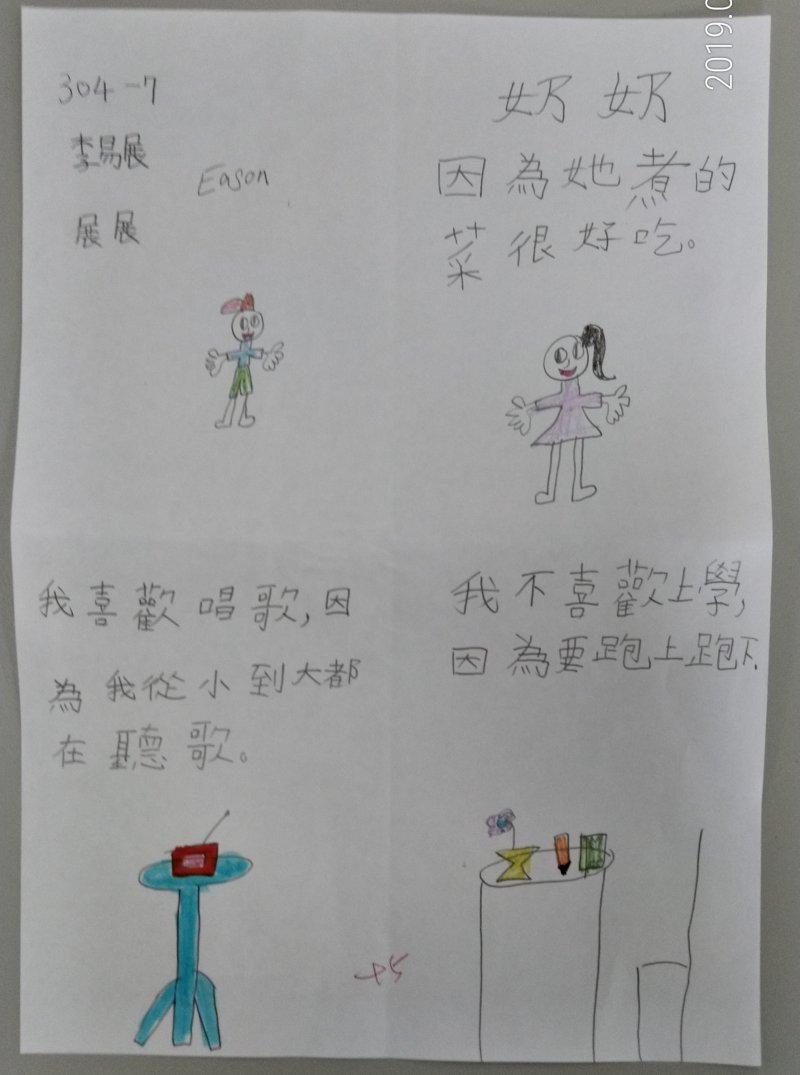 304-7
李易展
Eason
展展
奶奶
因為她煮的
菜很好吃。
我喜歡唱歌,因
為我從小到大都
在聽歌。
我不喜歡上學,
因為要跑上跑下.
+5
2019.0